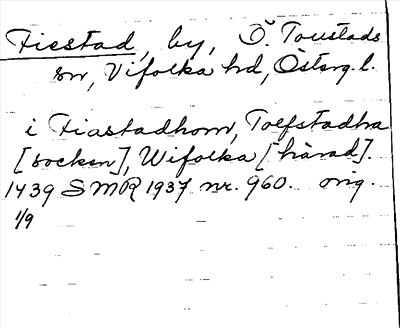 Fiestad, by, Ö. Toustads
sn, Vifolka hd, Östergl.
i Fiastadhom, Tolfstadha
[socken], Wifolka [härad].
1439 SMR 1937 nr. 960. orig.
1/9